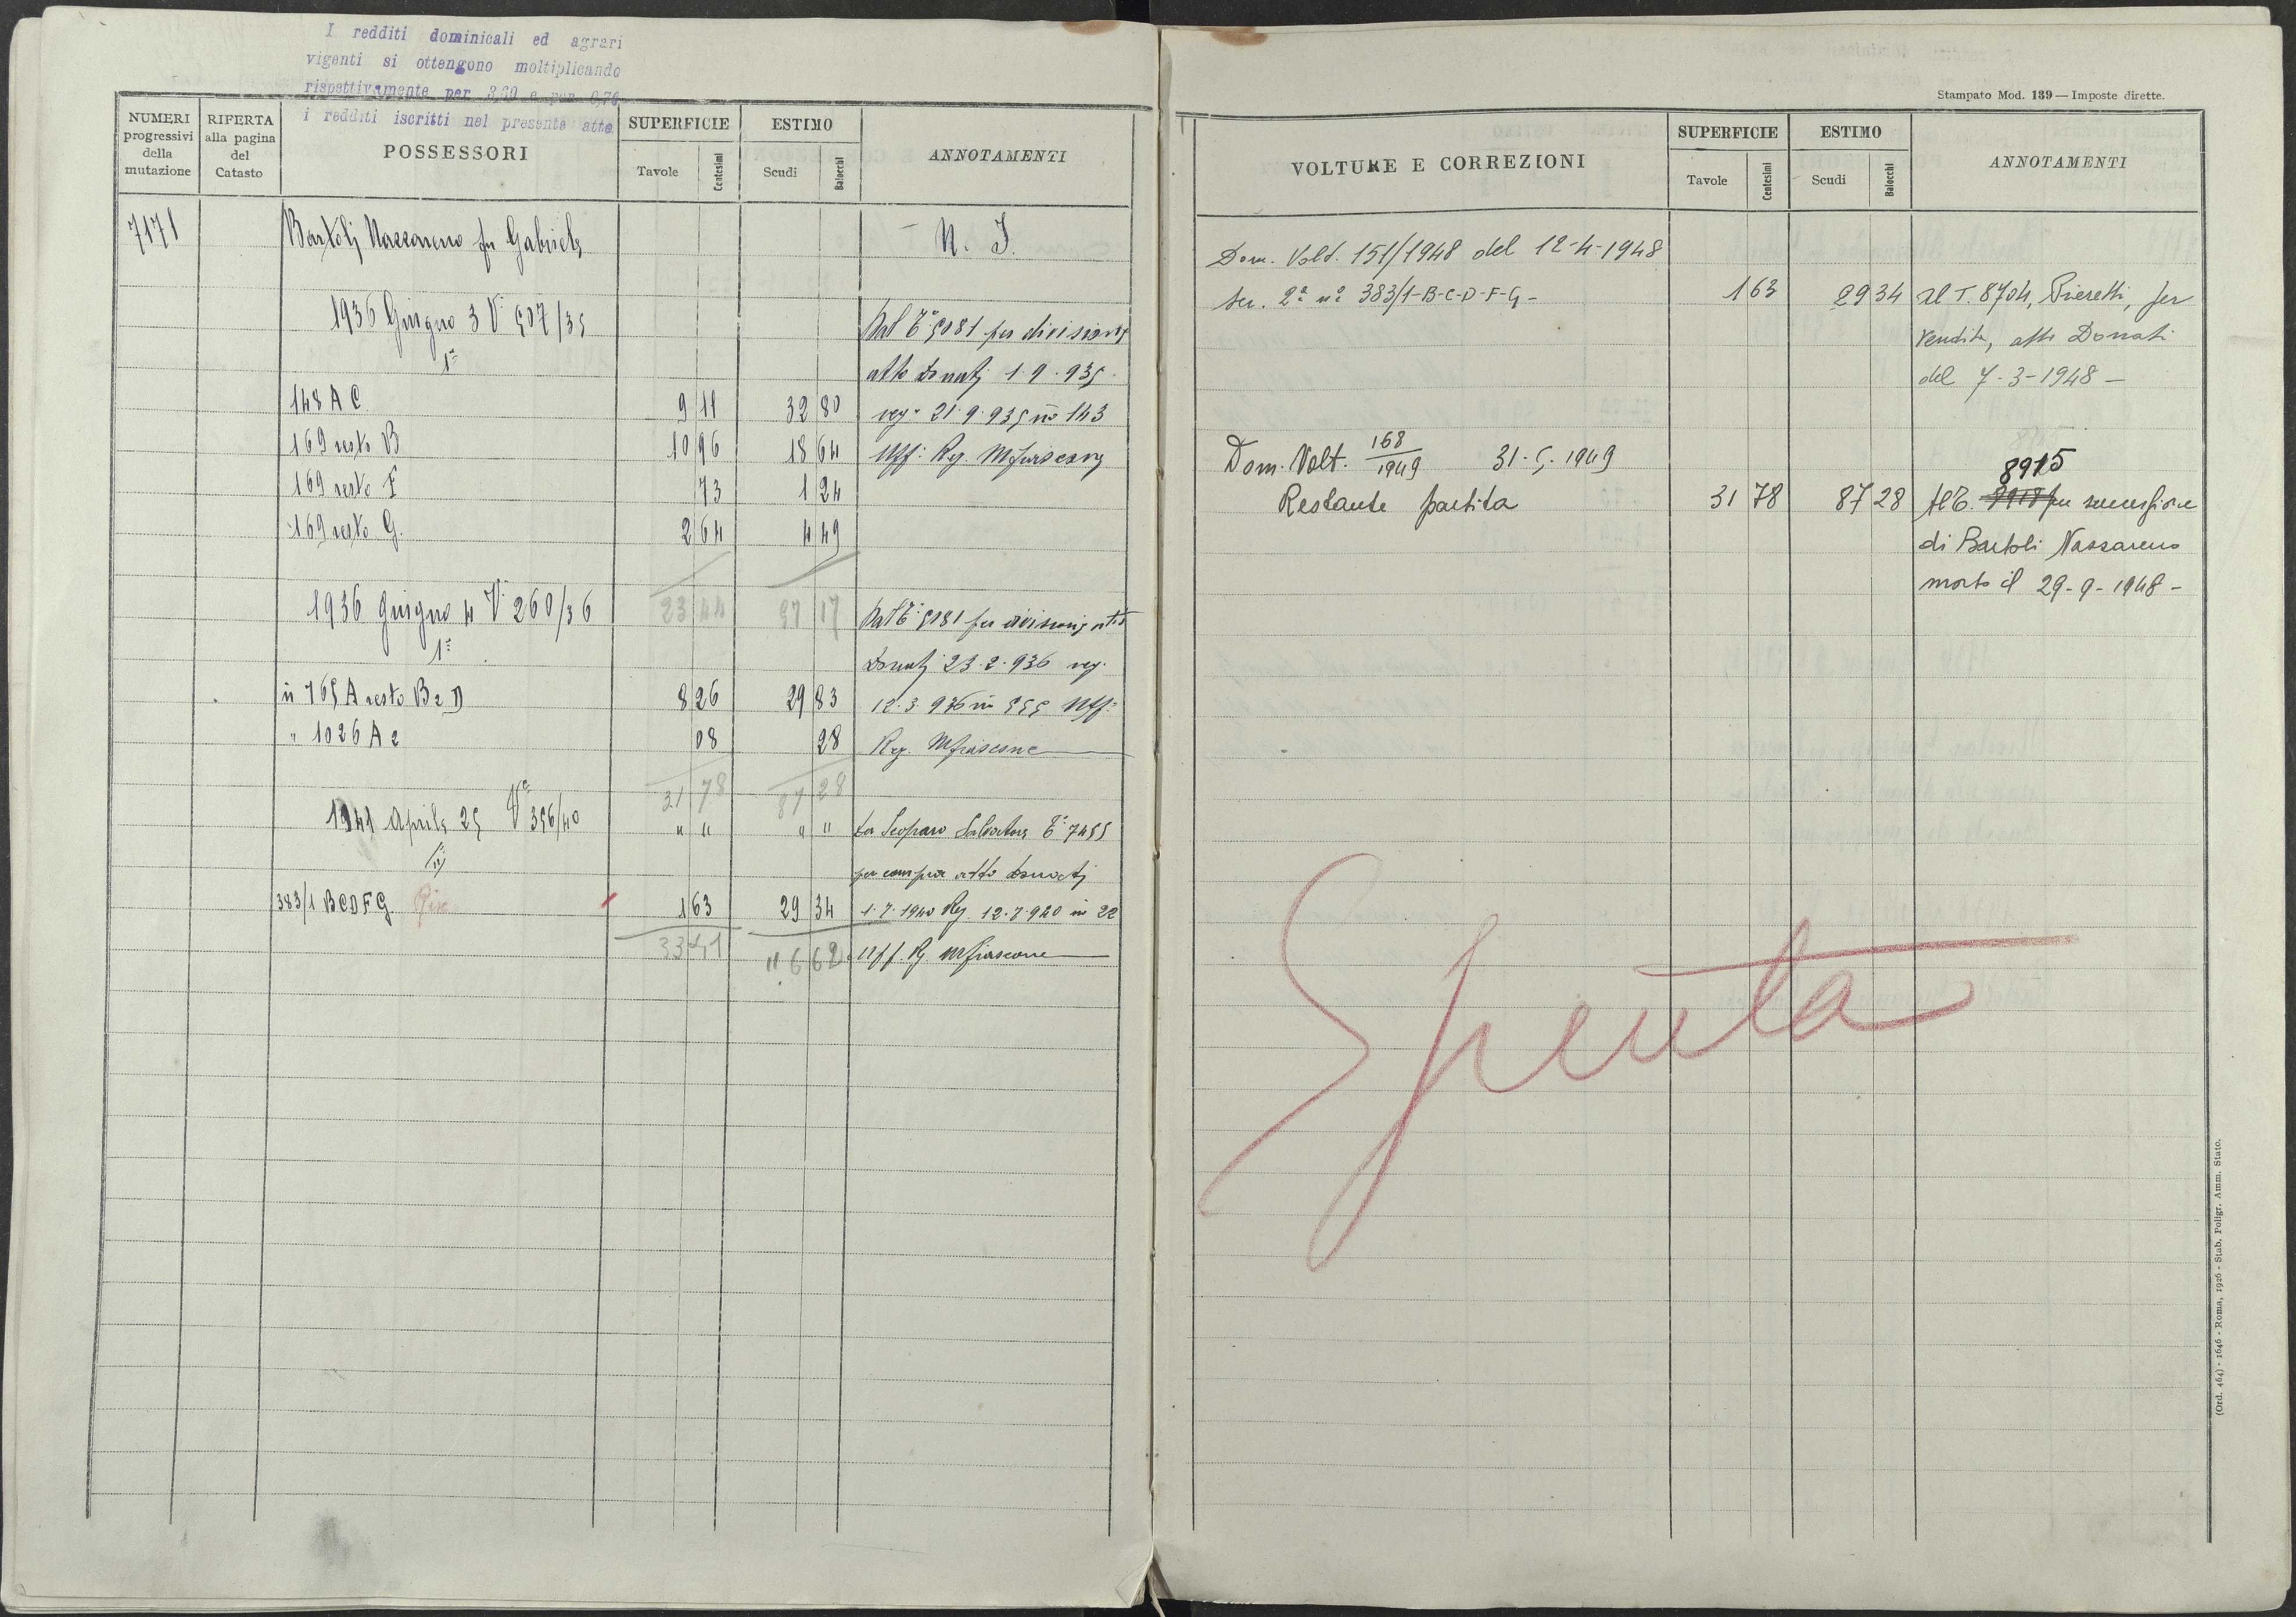 I redditi dominicali ed agrari
vigenti si ottengono moltiplicando
rispettivamente per 3,30 e per 0,76
i redditi iscritti nel presente atto
NUMERI progressivi della mutazione
RIFERTA alla pagina del Catasto
POSSESSORI
SUPERFICIE
Tavole Centesimi
ESTIMO
Scudi Baiocchi
ANNOTAMENTI
7171 Bartoli Nazzareno fu Gabriele N. I.
1936 Giugno 3 V. 507/35 Dal T. 5081 per divisione
1ª atto Donati 1.9.935.
148 A C 9 11 32 80 reg. 21.9.935 nº 143
169 resto B 10 96 18 64 Uff. Reg. Mfiascone
169 resto F 73 1 24
169 resto G. 2 64 4 49
1936 Giugno 4 V. 260/36 23 44 57 17 Dal T. 5081 per divisione atto
1ª Donati 23.2.936 reg.
n 765 A resto B 2 D 8 26 29 83 12.3.936 nº 555 Uff.
" 1026 A 2 08 28 Reg. Mfiascone
31 78 87 28
1941 Aprile 25 Vª 356/40 " " " " Da Scoparo Salvatore T. 7455
per compra atto Donati
383/1 BCDFG. 1 63 29 34 1.7.1940 Reg. 12.7.940 nº 22
33 41 116 62 Uff. Rg. Mfiascone
Stampato Mod. 139 — Imposte dirette.
VOLTURE E CORREZIONI
SUPERFICIE
Tavole Centesimi
ESTIMO
Scudi Baiocchi
ANNOTAMENTI
Dom. Volt. 151/1948 del 12-4-1948
Sez. 2ª nº 383/1-B-C-D-F-G- 1 63 29 34 al T. 8704, Pieretti, per
vendita, atto Donati
del 7-3-1948 —
Dom. Volt. 168/1949 31-5-1949 8915
Restante partita 31 78 87 28 Al T. per successione
di Bartoli Nazzareno
morto il 29-9-1948 -
Spenta
(Ord. 464) - 1646 - Roma, 1926 - Stab. Poligr. Amm. Stato.